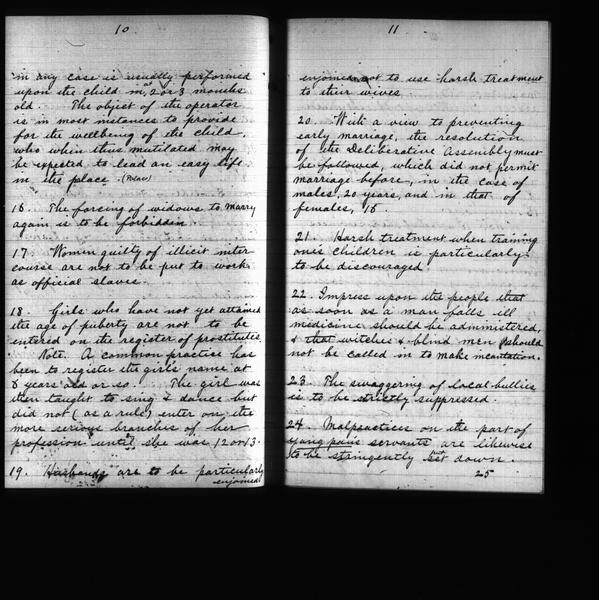 10
in any case is usually performed
upon the child in, 2 or 3 months
old. The object of the operator
is in most instances to provide
for the wellbeing of the child,
who when thus mutilated may
be expected to lead an easy life
in the place (Palace)
16. The forcing of widows to marry
again is to be forbidden.
17. Women guilty of illicit inter
course are not to be put to work
as official slaves.
18. Girls who have not yet attained
the age of puberty are not to be
entered on the register of prostitutes.
Note. A common practice has
been to register the girls name at
8 years old or so. The girl was
then taught to sing & dance but
did not (as a rule) enter on the
more serious branches of her
profession until she was 12 or 13.
19. Husbands are to be particularly
enjoined
11
enjoined not to use harsh treatment
to their wives
20. With a view to preventing
early marriage, the resolution
of the Deliberative Assembly must
be followed, which did not permit
marriage before, in the case of
males, 20 years, and in that of
females, 16.
21. Harsh treatment when training
one's children is particularly
to be discouraged.
22. Impress upon the people that
as soon as a man falls ill
medicine should be administered,
& that witches & blind men should
not be called in to make incantation.
23. The swaggering of local bullies
is to be strictly suppressed.
24. Malpractices on the part of
yang pans servants are likewise
to be stringently put down.
25